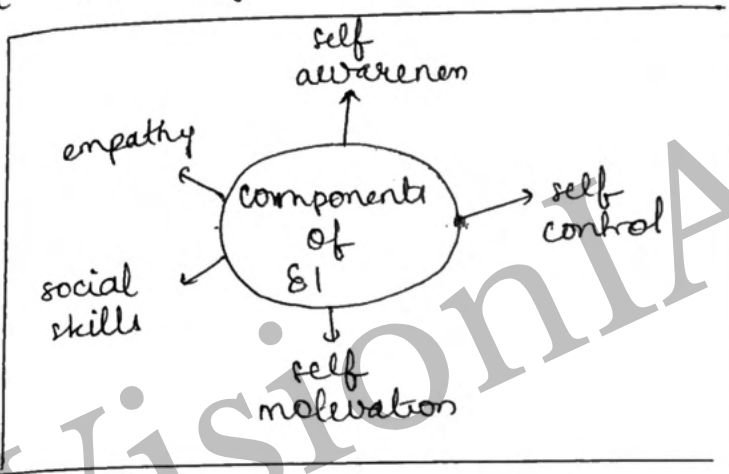 self
awareness
empathy
components
of
EI
self
control
social
skills
self
motivation
VisionIA